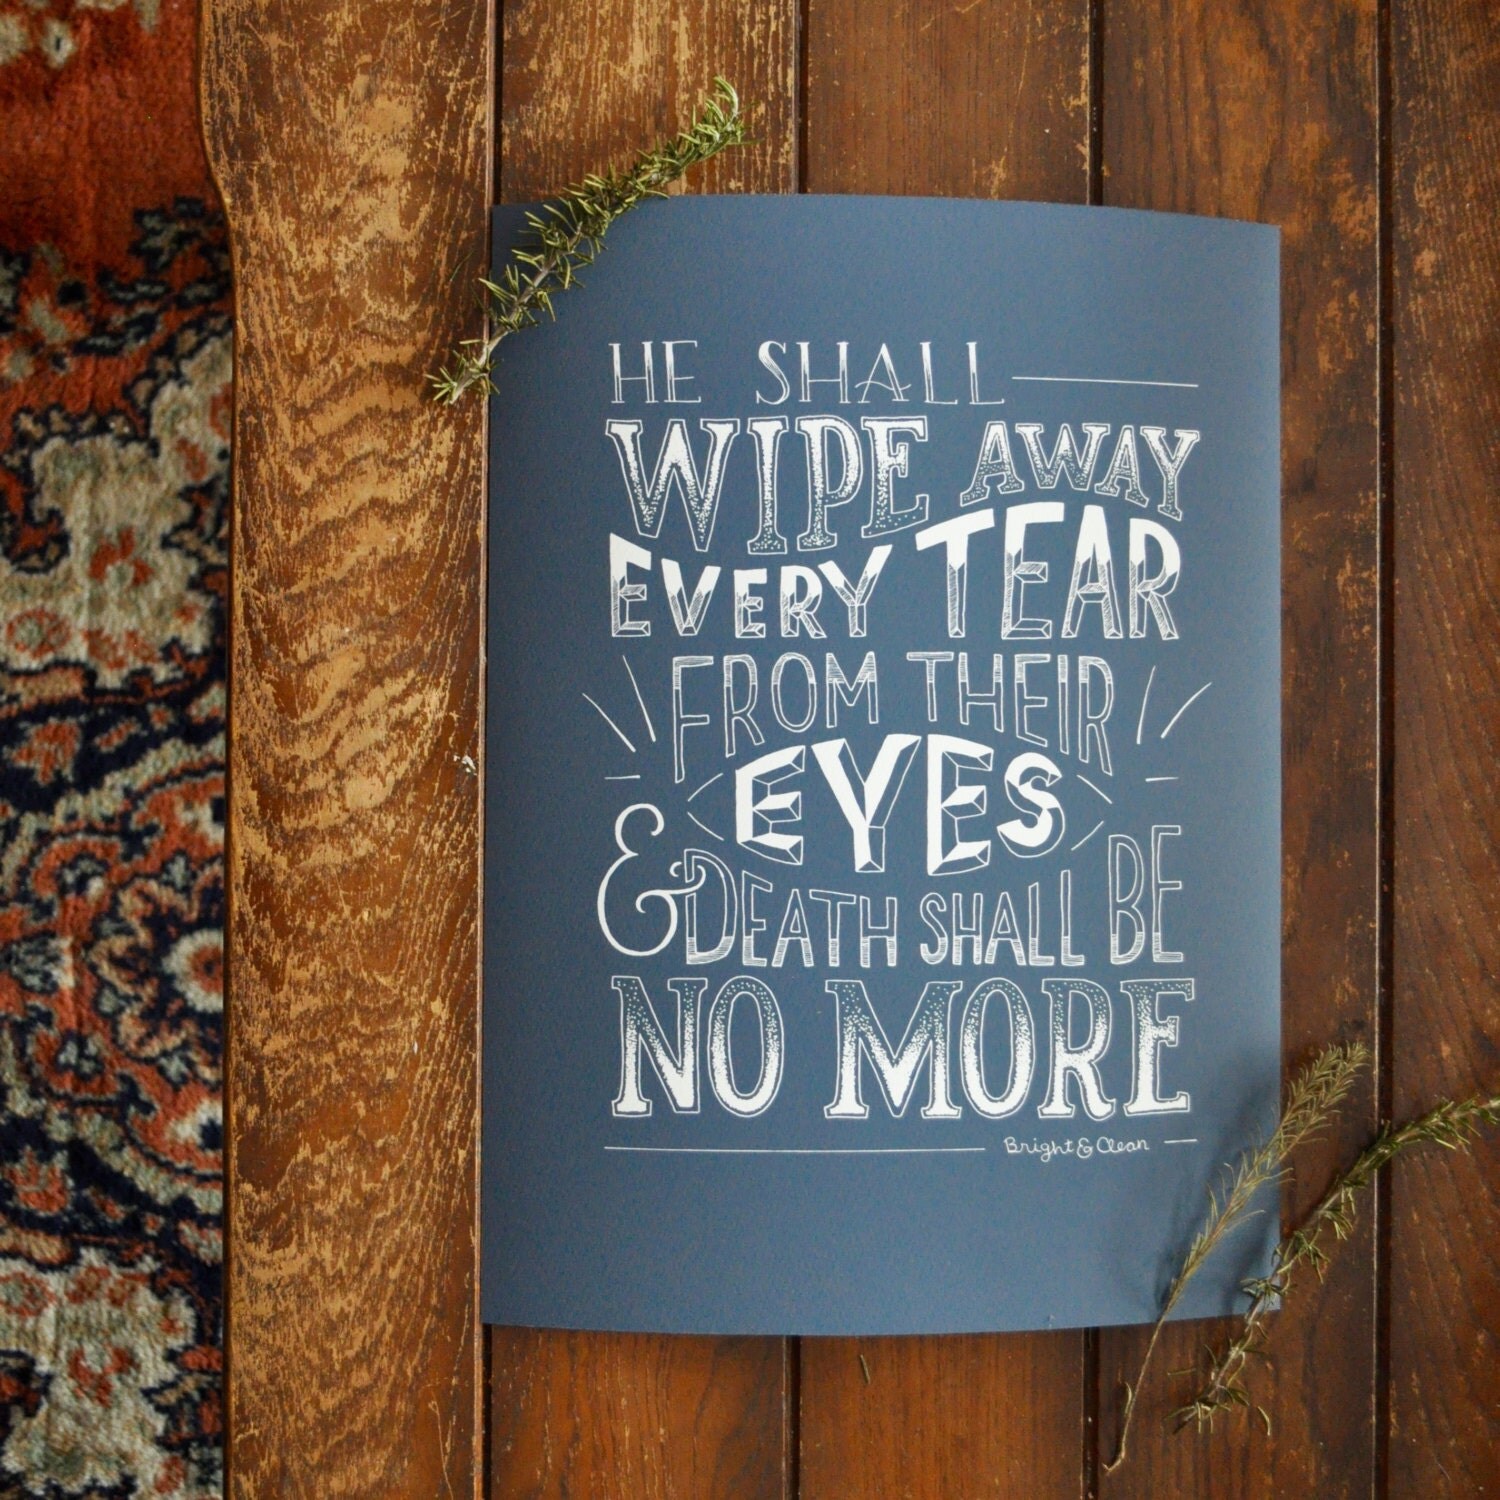 HE SHALL
WIPE AWAY
EVERY TEAR
FROM THEIR
EYES
& DEATH SHALL BE
NO MORE
Bright & Clean